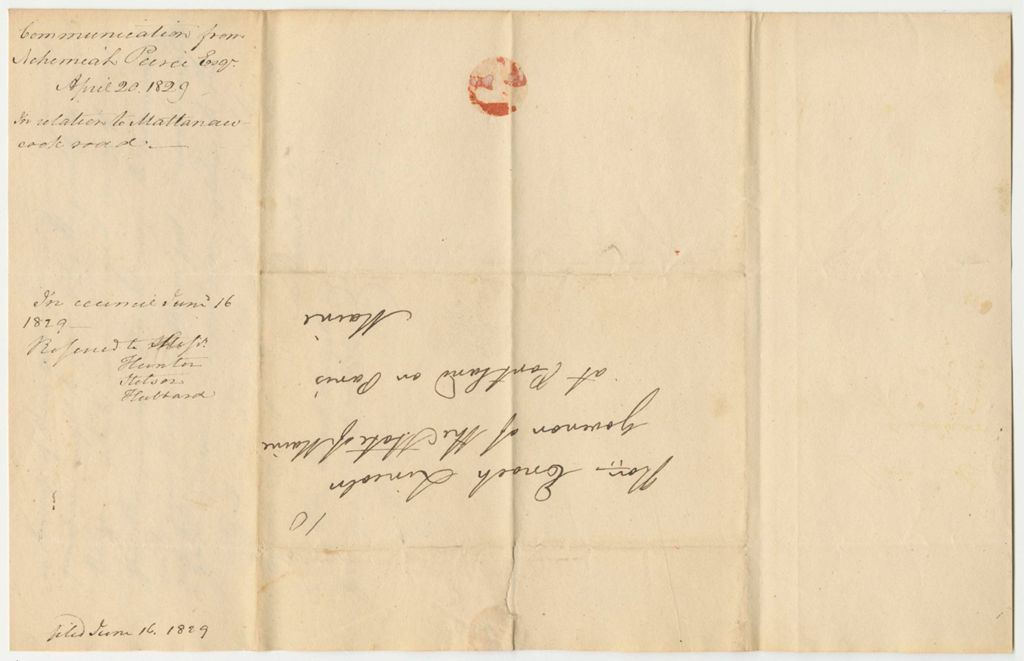 Communication from
Nehemiah Peirce Esqr.
April 20. 1829
In relation to Mattanaw-
cook road. —
In council June 16
1829 —
Refered to Messrs.
Hunter
Stetson
Hubbard
filed June 16. 1829
10
Hon. Enoch Lincoln
Governor of the State of Maine
at Portland or Paris
Maine